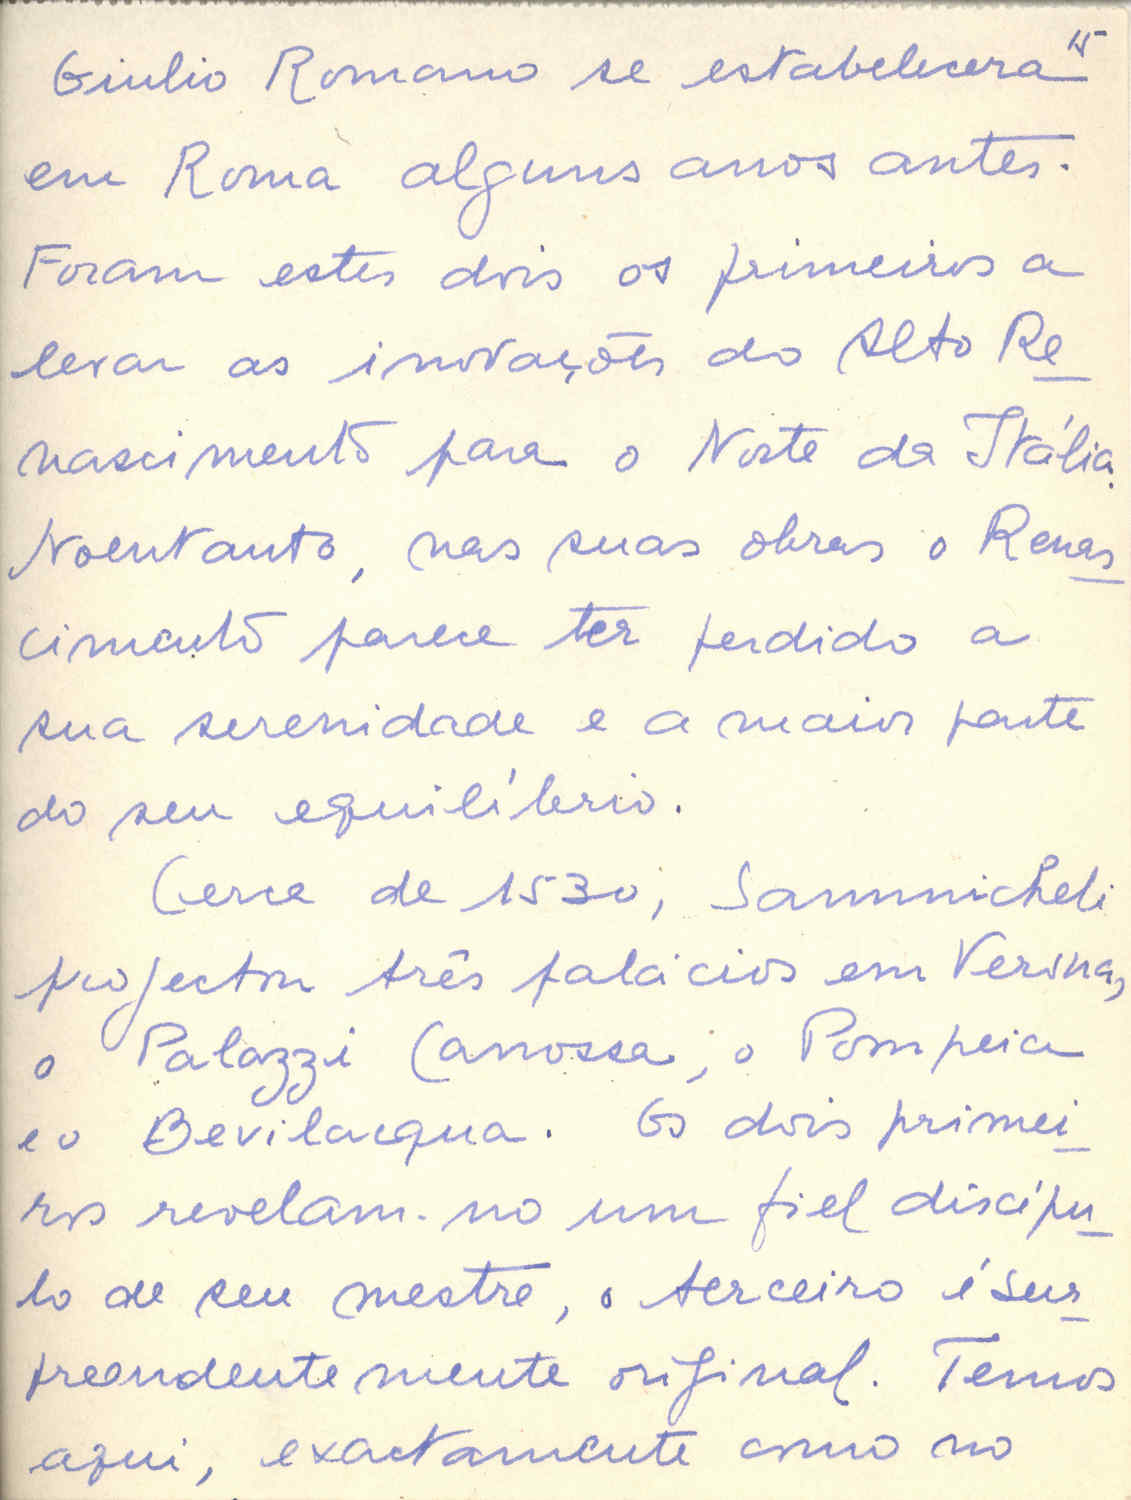 15
Giulio Romano se estabelecera
em Roma alguns anos antes.
Foram estes dois os primeiros a
levar as inovações do Alto Re
nascimento para o Norte da Itália.
Noentanto, nas suas obras o Renas
cimento parece ter perdido a
sua serenidade e a maior parte
do seu equilíbrio.
Cerca de 1530, Sammicheli
projectou três palácios em Verona,
o Palazzi Canossa, o Pompeia
e o Bevilacqua. Os dois primei
ros revelam-no um fiel discípu
lo de seu mestre, o terceiro é sur
preendentemente original. Temos
aqui, exactamente como no